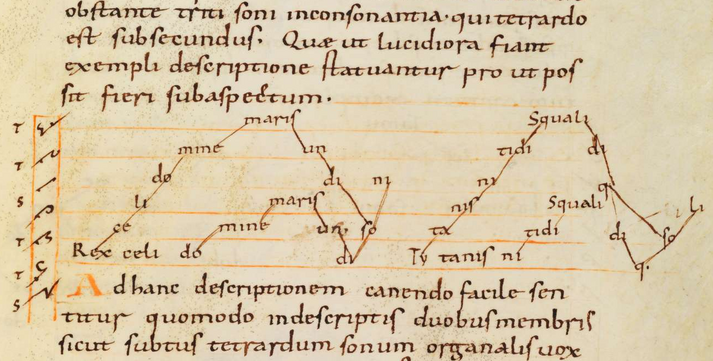 obstante triti soni inconsonantia · qui tetrardo
est subsecundus. Quæ ut lucidiora fiant
exempli descriptione statuantur pro ut pos
sit fieri subaspectum.
maris Squali
T mine un tidi di
T do di ni ni
S li maris nis Squali q; li
T ce mine un; so ta tidi di so
T Rex celi do di Ty tanis ni q.
S
Ad hanc descriptionem canendo facile sen
titur quomodo in descriptis duobus membris
sicut subtus tetrardum sonum organalis uox